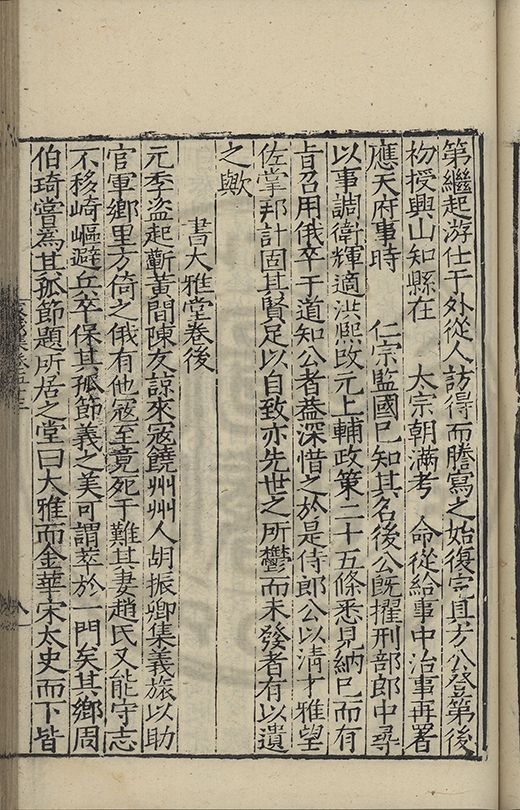 第繼起游仕于外從人訪得而謄寫之始復完具方公登第後
初授興山知縣在　太宗朝滿考　命從給事中治事再署
應天府事時　仁宗監國已知其名後公旣擢刑部郎中尋
以事謫衛輝適洪熙改元上輔政策二十五條悉見納巳而有
旨召用俄卒于道知公者葢深惜之於是侍郎公以清才雅望
佐掌邦計固其賢足以自致亦先世之所鬱而未發者有以遺
之歟
書大雅堂卷後
元季盜起蘄黃間陳友諒來寇饒州州人胡振卿集義旅以助
官軍鄉里方倚之俄有他寇至竟死于難其妻趙氏又能守志
不移崎嶇避兵卒保其孤節義之美可謂萃於一門矣其鄉周
伯琦嘗爲其孤節題所居之堂曰大雅而金華宋太史而下皆